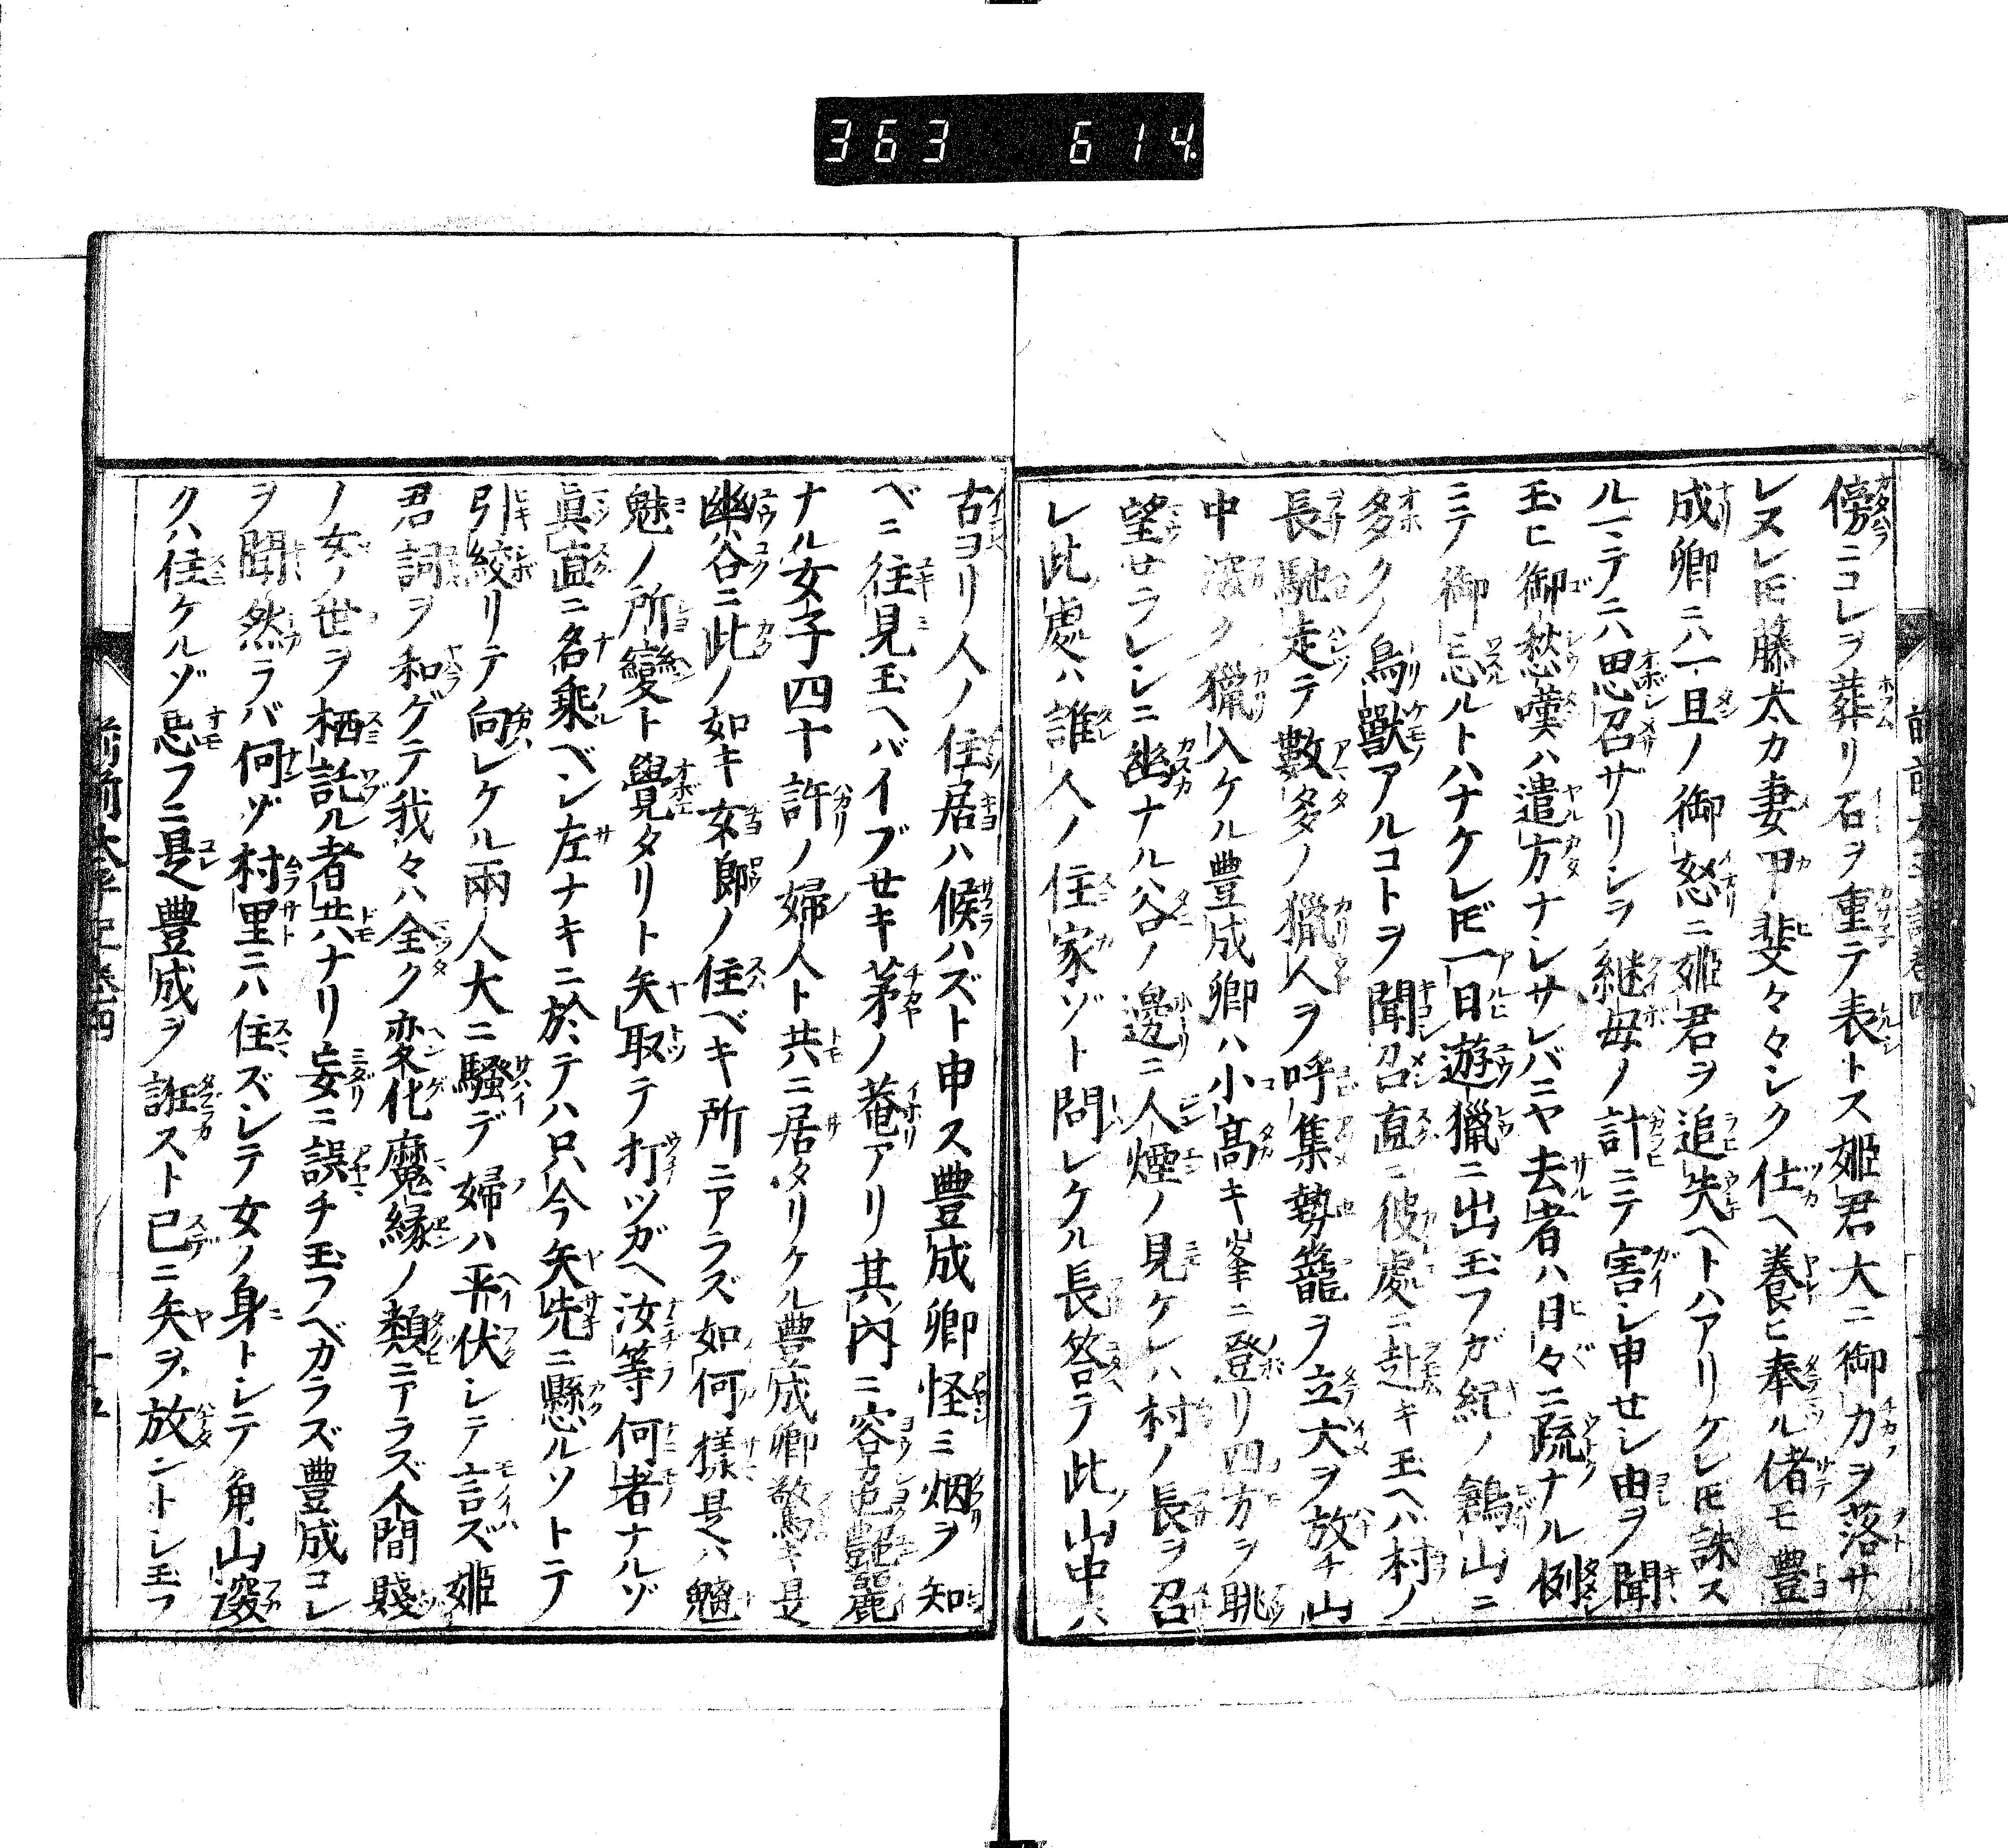 363 614
傍ニコレヲ葬リ石ヲ重テ表トス姫君大ニ御力ヲ落サ
レヌレ𪜈藤太カ妻甲斐々々シク仕ヘ養ヒ奉ル偖モ豊
成卿ニハ一旦ノ御怒ニ姫君ヲ追失ヘトハアリケレ𪜈誅ス
ル𪜈テニハ思召ザリシヲ継母ノ計ニテ害シ申セシ由ヲ聞
玉ヒ御愁嘆ハ遣方ナシサレバニヤ去者ハ日々ニ疏ナル例
ニテ御忘ルトハナケレ𪜈一日遊獵ニ出玉フガ紀ノ鶬山ニ
多クノ鳥獸アルコトヲ聞召直ニ彼處ニ赴キ玉ヘハ村ノ
長馳走テ數多ノ獵人ヲ呼集勢籠ヲ立犬ヲ放チ山
中深ク獵入ケル豊成卿ハ小高キ峯ニ登リ四方ヲ眺
望セラレシニ幽ナル谷ノ邊ニ人煙ノ見ケレハ村ノ長ヲ召
レ此處ハ誰人ノ住家ゾト問レケル長答テ此山中ハ
古ヨリ人ノ住居ハ候ハズト申ス豊成卿怪ミ烟ヲ知
ベニ往見玉ヘバイブセキ茅ノ菴アリ其内ニ容色艶麗
ナル女子四十許ノ婦人ト共ニ居タリケル豊成卿驚キ是
幽谷ニ此ノ如キ女郎ノ住ベキ所ニアラズ如何様是ハ魑
魅ノ所變ト覺タリト矢取テ打ツガヘ汝等何者ナルゾ
眞直ニ名乘ベシ左ナキニ於テハ只今矢先ニ懸ルソトテ
引絞リテ向レケル兩人大ニ騒デ婦ハ平伏シテ言ズ姫
君詞ヲ和ゲテ我々ハ全ク変化魔縁ノ類ニアラズ人間賤
ノ女ノ世ヲ栖託ル者共ナリ妄ニ誤チ玉フベカラズ豊成コレ
ヲ聞然ラバ何ゾ村里ニハ住ズシテ女ノ身トシテ角山邃
クハ住ケルゾ忌フニ是豊成ヲ誑スト已ニ矢ヲ放ントシ玉フ
前前太平記巻四
十五